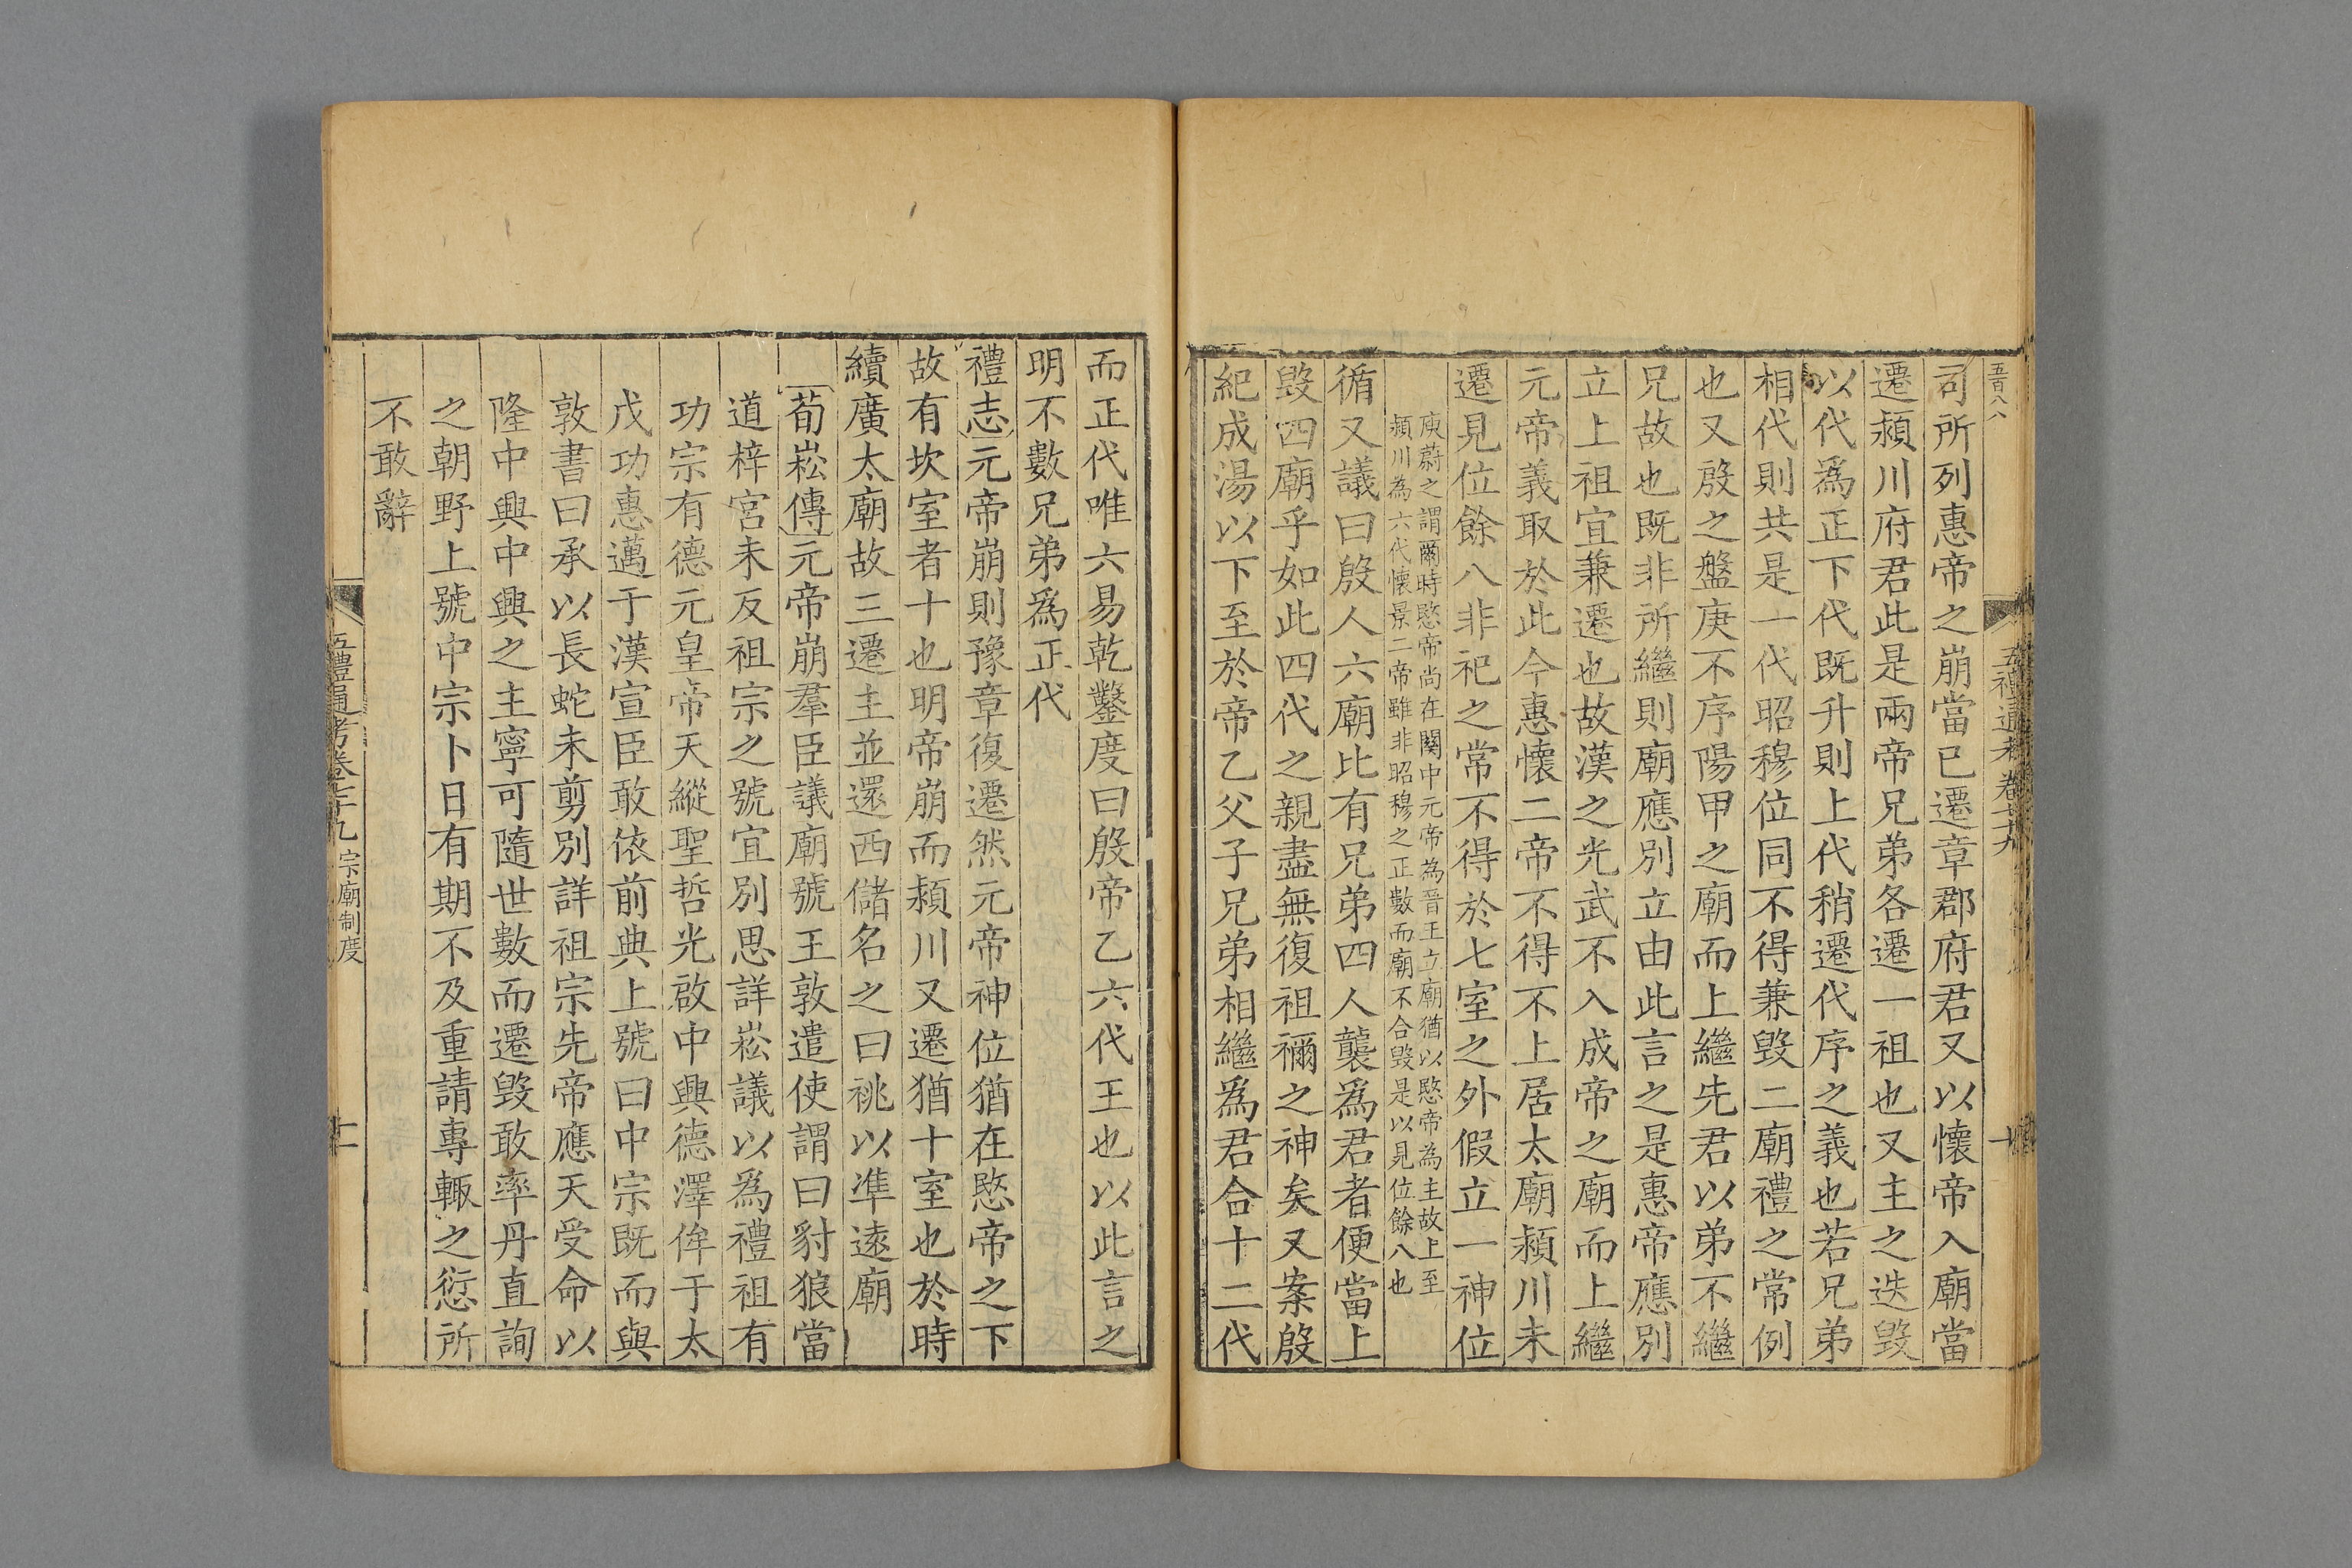 五百八八
五禮通考卷七十九
十
司所列惠帝之崩當已遷章郡府君又以懷帝入廟當
遷潁川府君此是兩帝兄弟各遷一祖也又主之迭毀
以代爲正下代既升則上代稍遷代序之義也若兄弟
相代則共是一代昭穆位同不得兼毀二廟禮之常例
也又殷之盤庚不序陽甲之廟而上繼先君以弟不繼
兄故也既非所繼則廟應別立由此言之是惠帝應別
立上祖宜兼遷也故漢之光武不入成帝之廟而上繼
元帝義取於此今惠懷二帝不得不上居太廟潁川未
遷見位餘八非祀之常不得於七室之外假立一神位
庾蔚之謂爾時愍帝尚在關中元帝為晉王立廟猶以愍帝為主故上至
潁川為六代懷景二帝雖非昭穆之正數而廟不合毀是以見位餘八也
循又議曰殷人六廟比有兄弟四人襲爲君者便當上
毀四廟乎如此四代之親盡無復祖禰之神矣又案殷
紀成湯以下至於帝乙父子兄弟相繼爲君合十二代
而正代唯六易乾鑿度曰殷帝乙六代王也以此言之
明不數兄弟爲正代
禮志元帝崩則豫章復遷然元帝神位猶在愍帝之下
故有坎室者十也明帝崩而潁川又遷猶十室也於時
續廣太廟故三遷主並還西儲名之曰祧以準遠廟
荀崧傳元帝崩羣臣議廟號王敦遣使謂曰豺狼當
道梓宮未反祖宗之號宜別思詳崧議以爲禮祖有
功宗有德元皇帝天縱聖哲光啟中興德澤侔于太
戊功惠邁于漢宣臣敢依前典上號曰中宗既而與
敦書曰承以長蛇未剪別詳祖宗先帝應天受命以
隆中興中興之主寧可隨世數而遷毀敢率丹直詢
之朝野上號中宗卜日有期不及重請專輙之愆所
不敢辭
五禮通考卷七十九 宗廟制度